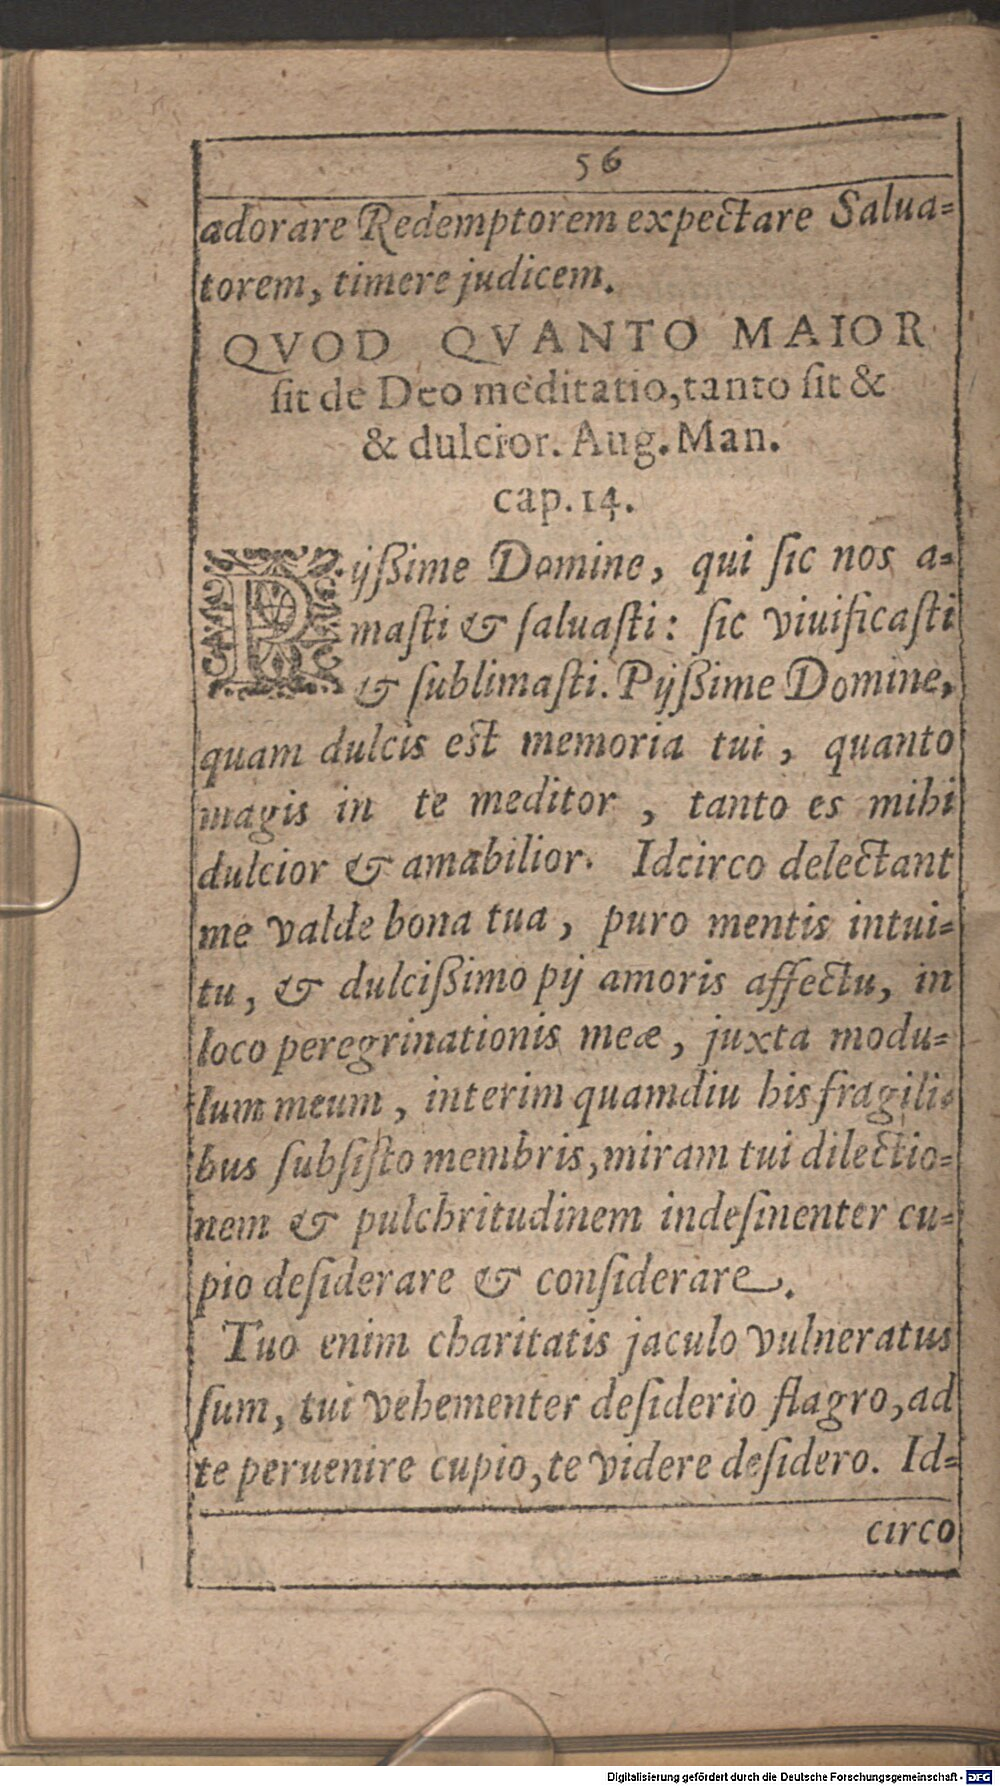 56
adorare Redemptorem expectare Salua-
torem, timere judicem.
QVOD QVANTO MAIOR
ſit de Deo meditatio, tanto ſit &
& dulcior. Aug. Man.
cap. 14.
Pijßime Domine, qui ſic nos a-
maſti & ſaluaſti: ſic viuificaſti
& ſublimaſti. Pijßime Domine,
quam dulcis est memoria tui, quanto
magis in te meditor, tanto es mihi
dulcior & amabilior. Idcirco delectant
me valde bona tua, puro mentis intui-
tu, & dulcißimo pij amoris affectu, in
loco peregrinationis meæ, juxta modu-
lum meum, interim quamdiu his fragili-
bus ſubſiſto membris, miram tui dilectio-
nem & pulchritudinem indeſinenter cu-
pio deſiderare & conſiderare.
Tuo enim charitatis jaculo vulneratus
ſum, tui vehementer deſiderio flagro, ad
te peruenire cupio, te videre deſidero. Id-
circo
Digitalisierung gefördert durch die Deutsche Forschungsgemeinschaft - DFG